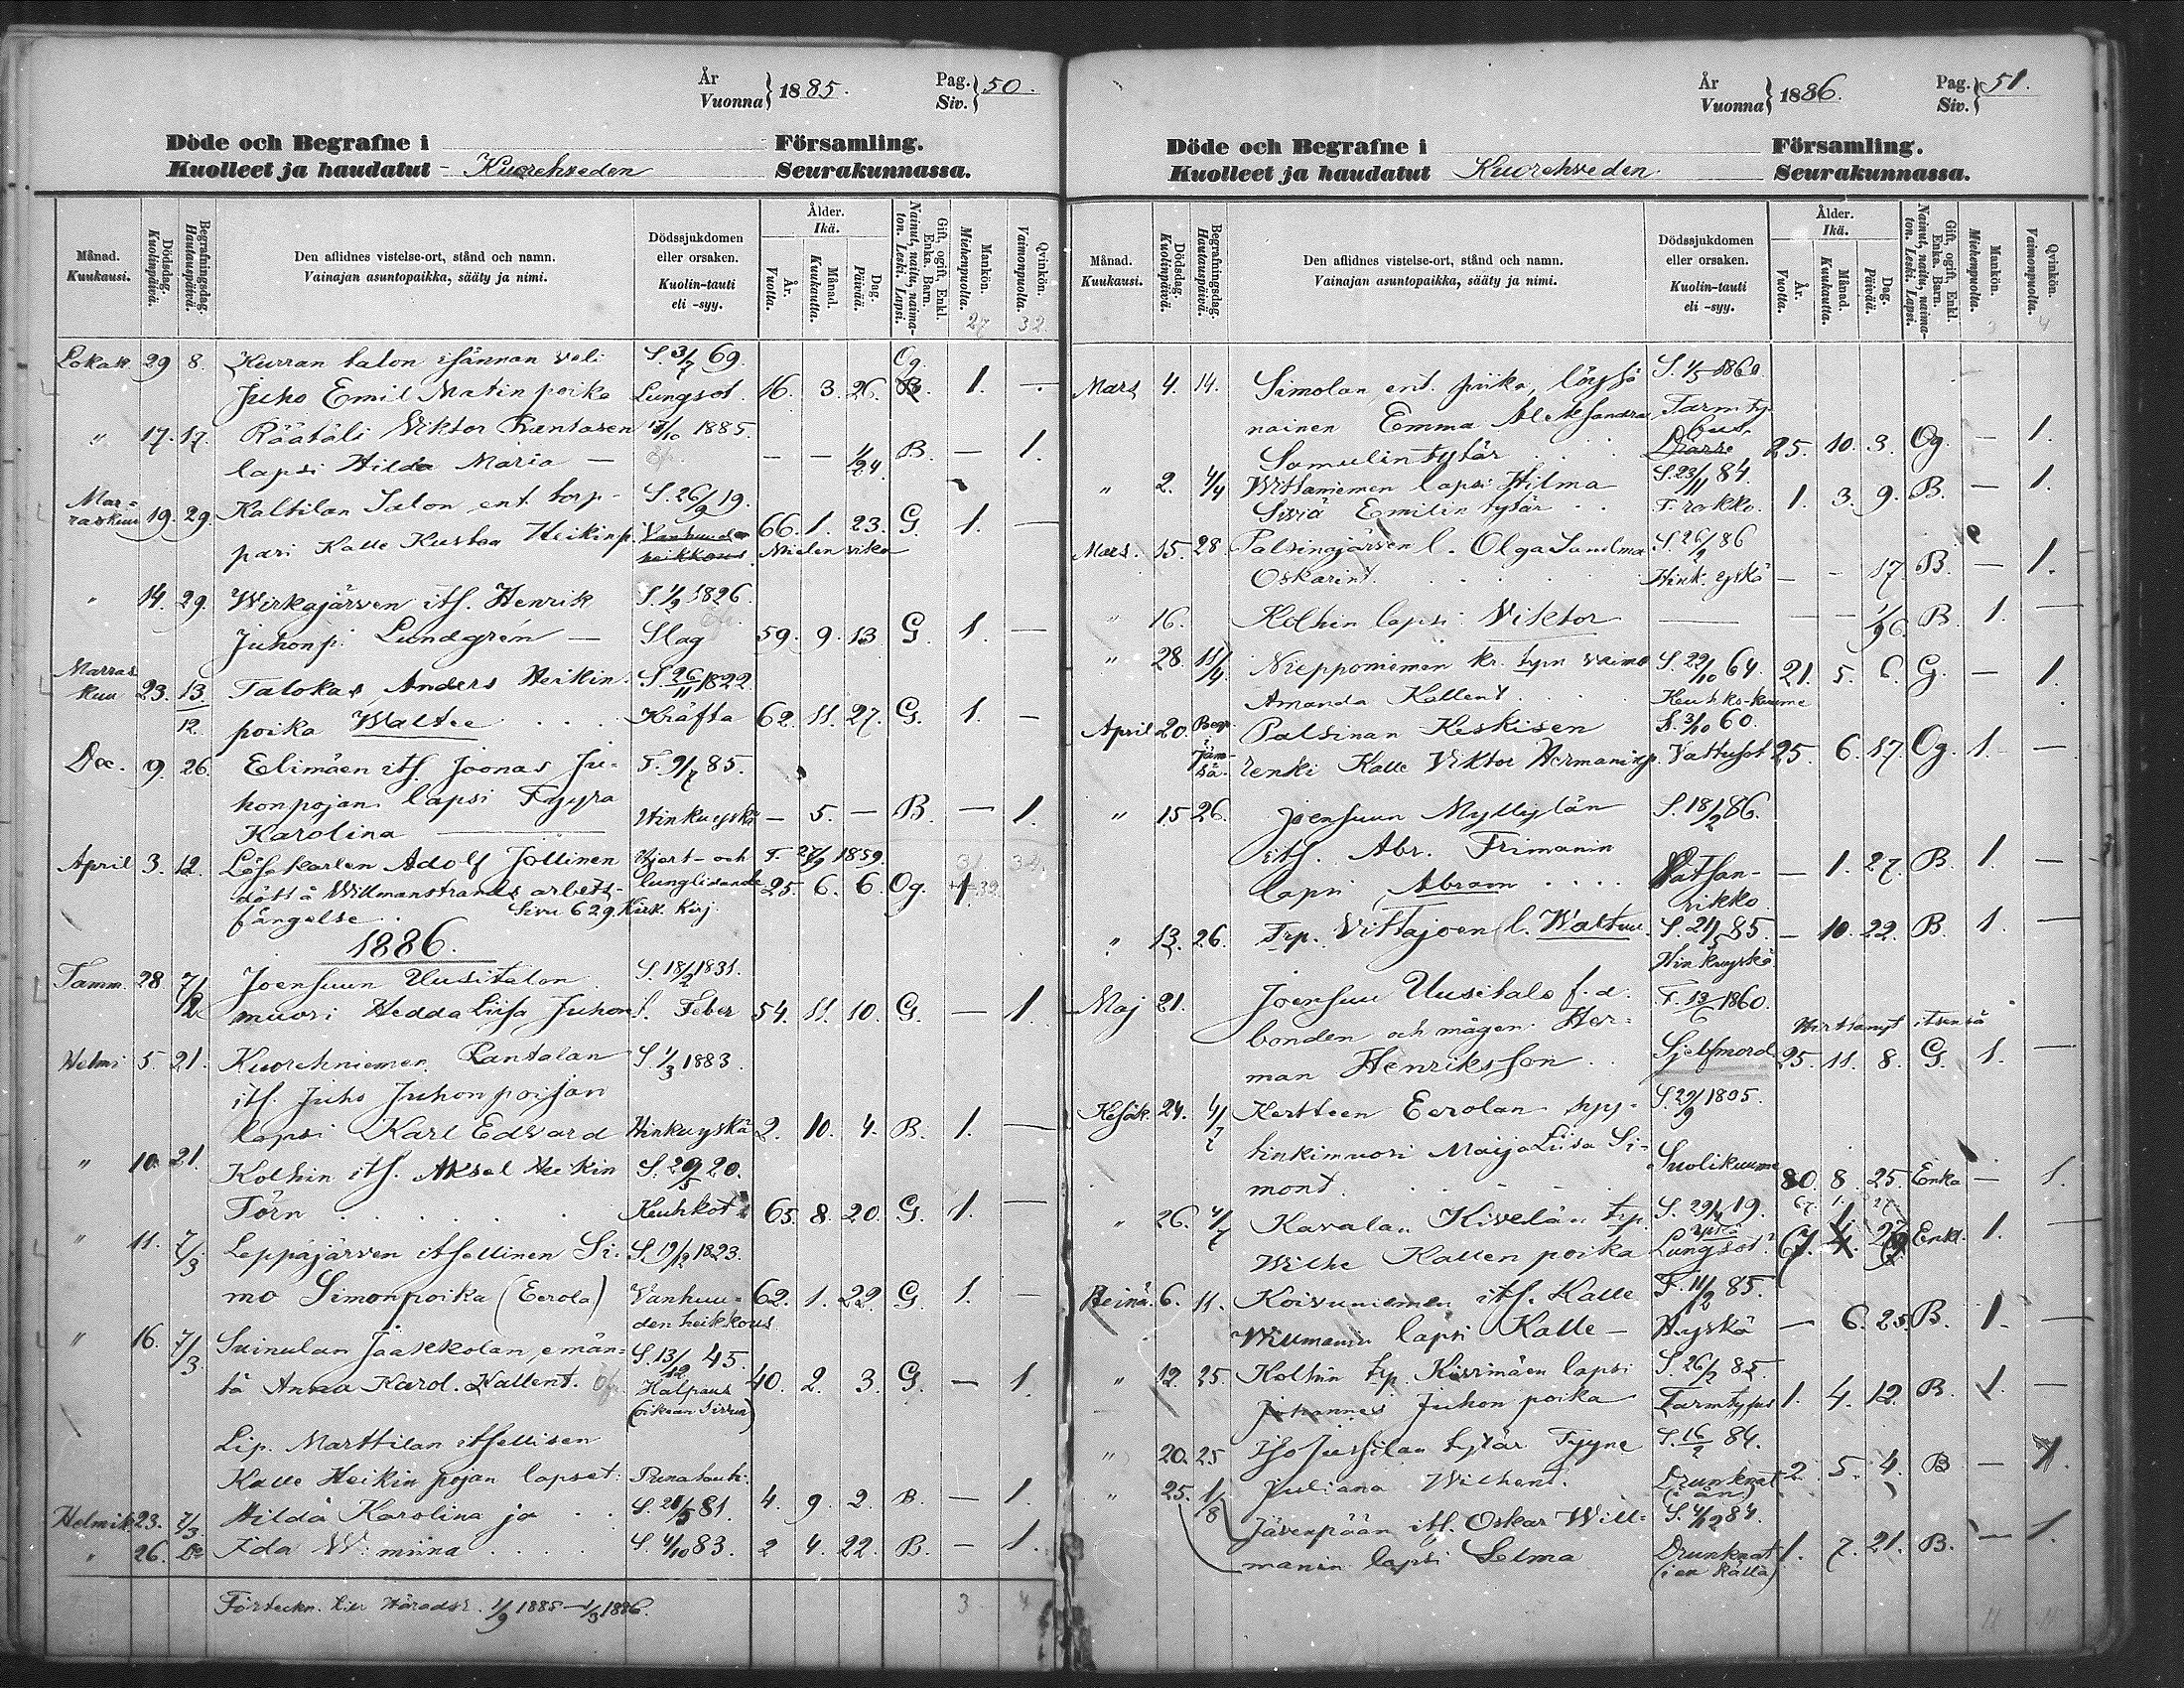 År
Vuonna } 1885.
Pag.
Siv. } 50.
Döde och Begrafne i Församling.
Kuolleet ja haudatut Kuorehveden Seurakunnassa.
Månad. Kuukausi.
Dödsdag. Kuolinpäivä.
Begrafningsdag. Hautauspäivä.
Den aflidnes vistelse-ort, stånd och namn.
Vainajan asuntopaikka, sääty ja nimi.
Dödssjukdomen eller orsaken.
Kuolin-tauti eli -syy.
Ålder. Ikä.
År. Vuotta.
Månad. Kuukautta.
Dag. Päivää.
Gift, ogift, Enkl. Enka. Barn.
Nainut, naitu, naima-ton. Leski. Lapsi.
Mankön. Miehenpuolta. 27
Qvinkön. Vaimonpuolta. 32
Lokak. 29 8. Kurran talon isännän veli S. 3/7 69. Og.
Juho Emil Matinpoika Lungsot. 16. 3. 26. B. 1. —
" 17. 17. Räätäli Viktor Rantasen 17/10 1885.
lapsi Hilda Maria — — — 1/24 B. — 1.
Marraskuu 19. 29. Kaltilan Salon ent. torp- S. 26/9 19.
pari Kalle Kustaa Heikinp. Vanhuuden heikkous. Mielen vika 66. 1. 23. G. 1. —
" 14. 29. Wirkajärven its. Henrik S. 1/2 1826.
Juhonp. Lundgrén — Slag 59. 9. 13 G. 1. —
Marraskuu 23. 13/12. Talokas Anders Heikin- S. 26/11 1822
poika Waltee Kräfta 62. 11. 27. G. 1. —
Dec. 9. 26. Eelimäen its. Joonas Ju- F. 9/7 85.
honpojan lapsi Fyyra Hinkuyskä — 5. — B. — 1.
Karolina
April 3. 12. Löskarlen Adolf Jollinen Hjert- och F. 27/9 1859.
död i Willmanstrands arbets- lunglidande 25. 6. 6. Og. 1
fängelse. Sivu 629. Kirk. Kirj.
1886.
Tamm. 28 7/2 Joensuun Uusitalon S. 18/2 1831.
muori Hedda Liisa Juhont. Feber 54. 11. 10. G. — 1.
Helmi 5. 21. Kuorehniemen Rantalan S. 1/3 1883.
its. Juho Juhonpoijan
lapsi Karl Edvard Hinkuyskä 2. 10. 4. B. 1. —
" 10. 21. Kolhin its. Aksel Heikin S. 20/5 20.
Törn Keuhkot. 65. 8. 20. G. 1. —
" 11. 7/3 Leppäjärven itsellinen Si- S. 19/12 1823.
mo Simonpoika (Eerola) Vanhuuden heikkous 62. 1. 22. G. 1. —
" 16. 7/3. Suinulan Jaakkolan emän- S. 13/12 45.
tä Anna Karol. Kallent. Halpaus 40. 2. 3. G. — 1.
(oikean sivun)
Lip. Marttilan itsellisen
Kalle Heikin pojan lapset: Punatauti.
Helmik 23. 7/3. Hilda Karolina ja S. 21/5 81. 4. 9. 2. B. — 1.
" 26. Do Ida Wimiina S. 4/10 83. 2 4. 22. B. — 1.
Förteckn. till Häradsr. 1/9 1885 — 1/3 1886. 3 4
År
Vuonna } 1886.
Pag.
Siv. } 51.
Döde och Begrafne i Församling.
Kuolleet ja haudatut Kuorehveden Seurakunnassa.
Månad. Kuukausi.
Dödsdag. Kuolinpäivä.
Begrafningsdag. Hautauspäivä.
Den aflidnes vistelse-ort, stånd och namn.
Vainajan asuntopaikka, sääty ja nimi.
Dödssjukdomen eller orsaken.
Kuolin-tauti eli -syy.
Ålder. Ikä.
År. Vuotta.
Månad. Kuukautta.
Dag. Päivää.
Gift, ogift, Enkl. Enka. Barn.
Nainut, naitu, naima-ton. Leski. Lapsi.
Mankön. Miehenpuolta.
Qvinkön. Vaimonpuolta. 4
Mars 4. 14. Simolan ent. piika, löysä S. 1/5 1860.
nainen Emma Aleksandra Tarmty-
Samulintytär fus. 25. 10. 3. Og. — 1.
" 2. 4/4 Wittaniemen lapsi Hilma S. 23/11 84.
Siviä Emilintytär T. rokko. 1. 3. 9. B. — 1.
Mars. 15. 28 Palsinajärven l. Olga Sandlma S. 26/2 86
Oskarint. Hink. yskä — — 17. B. — 1.
" 16. Kolhin lapsi Viktor — — — 1/96. B. 1. —
" 28. 11/4 Nieppomiemen kr. typn vaimo S. 22/10 64. 21. 5. 6. G. — 1.
Amanda Kallent. Keuhko-kuume
April 20. Begr. i Jämsä. Palsinan Keskisen S. 3/10 60.
renki Kalle Viktor Hermaninp. Vattusot 25. 6. 17. Og. 1. —
" 15 26. Joensuun Myllylän S. 18/2 86.
its. Abr. Frimanin
lapsi Abram Vatsanvikko — 1. 27. B. 1. —
" 13. 26. Trp. Vittajoen l. Walttu. S. 21/5 85. — 10. 22. B. 1. —
Hinkuyskä
Maj 21. Joensuu Uusitalo f.d. F. 13/6 1860.
bonden och mågen Her- Hirttänyt itsensä
man Henriksson Sjelfmord 25. 11. 8. G. 1. —
Kesäk. 24. 4/7 Kertteen Eerolan syy- S. 29/9 1805.
tinkimuori Maija Liisa Si- Suolikuume
mont. 80. 8. 25. Enka — 1.
" 26. 4/7 Kavalan Kivelän trp. S. 29/4 19. 67. 1. 27.
Wilhe Kallen poika Lungsot. Enkl. 1. —
Heinä. 6. 11. Koivuniemen its. Kalle F. 11/12 85.
Willmanin lapsi Kalle — Hyskä — 6. 25. B. 1. —
" 12. 25. Kolhin trp. Kirrimäen lapsi S. 26/2 85.
Johannes Juhon poika Tarmtyfus 1. 4. 12. B. 1. —
" 20. 25 Iso Jussilan tytär Tyyne S. 16/2 84.
Juliana Wilhent. Drunknat (i ån) 2. 5. 4. B — 1.
" 25. 1/8 Jävenpään its. Oskar Will- S. 4/12 84.
manin lapsi Selma Drunknat (i en källa) 1. 7. 21. B. — 1.
11 11